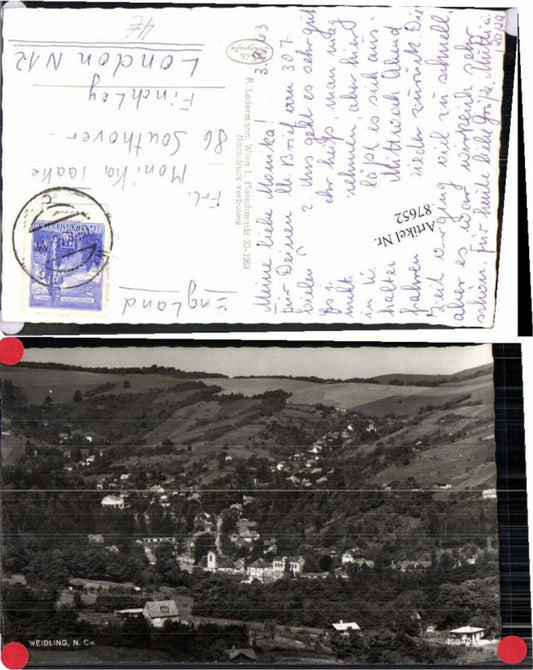 3.8.63
Meine liebe Monika!
für Deinen lb. Brief vom 30.7.
vielen
. Uns geht es sehr gut
mil
sehr heiß, man mag
nehmen, aber hier
in
läßt es sich aus-
halten. Mittwoch Abend
fahren wir wieder zurück. Die
Zeit verging viel zu schnell,
aber es war wirklich sehr
schön. Für heute liebe Grüße, Mutti
4E
Frl.
Monika
86 Southover
Finchley
London N12
England
P. Ledermann, Wien I, Fleischmarkt 20, 1963
Nachdruck verboten!
Artikel Nr.
87652
WEIDLING, N. Oe.